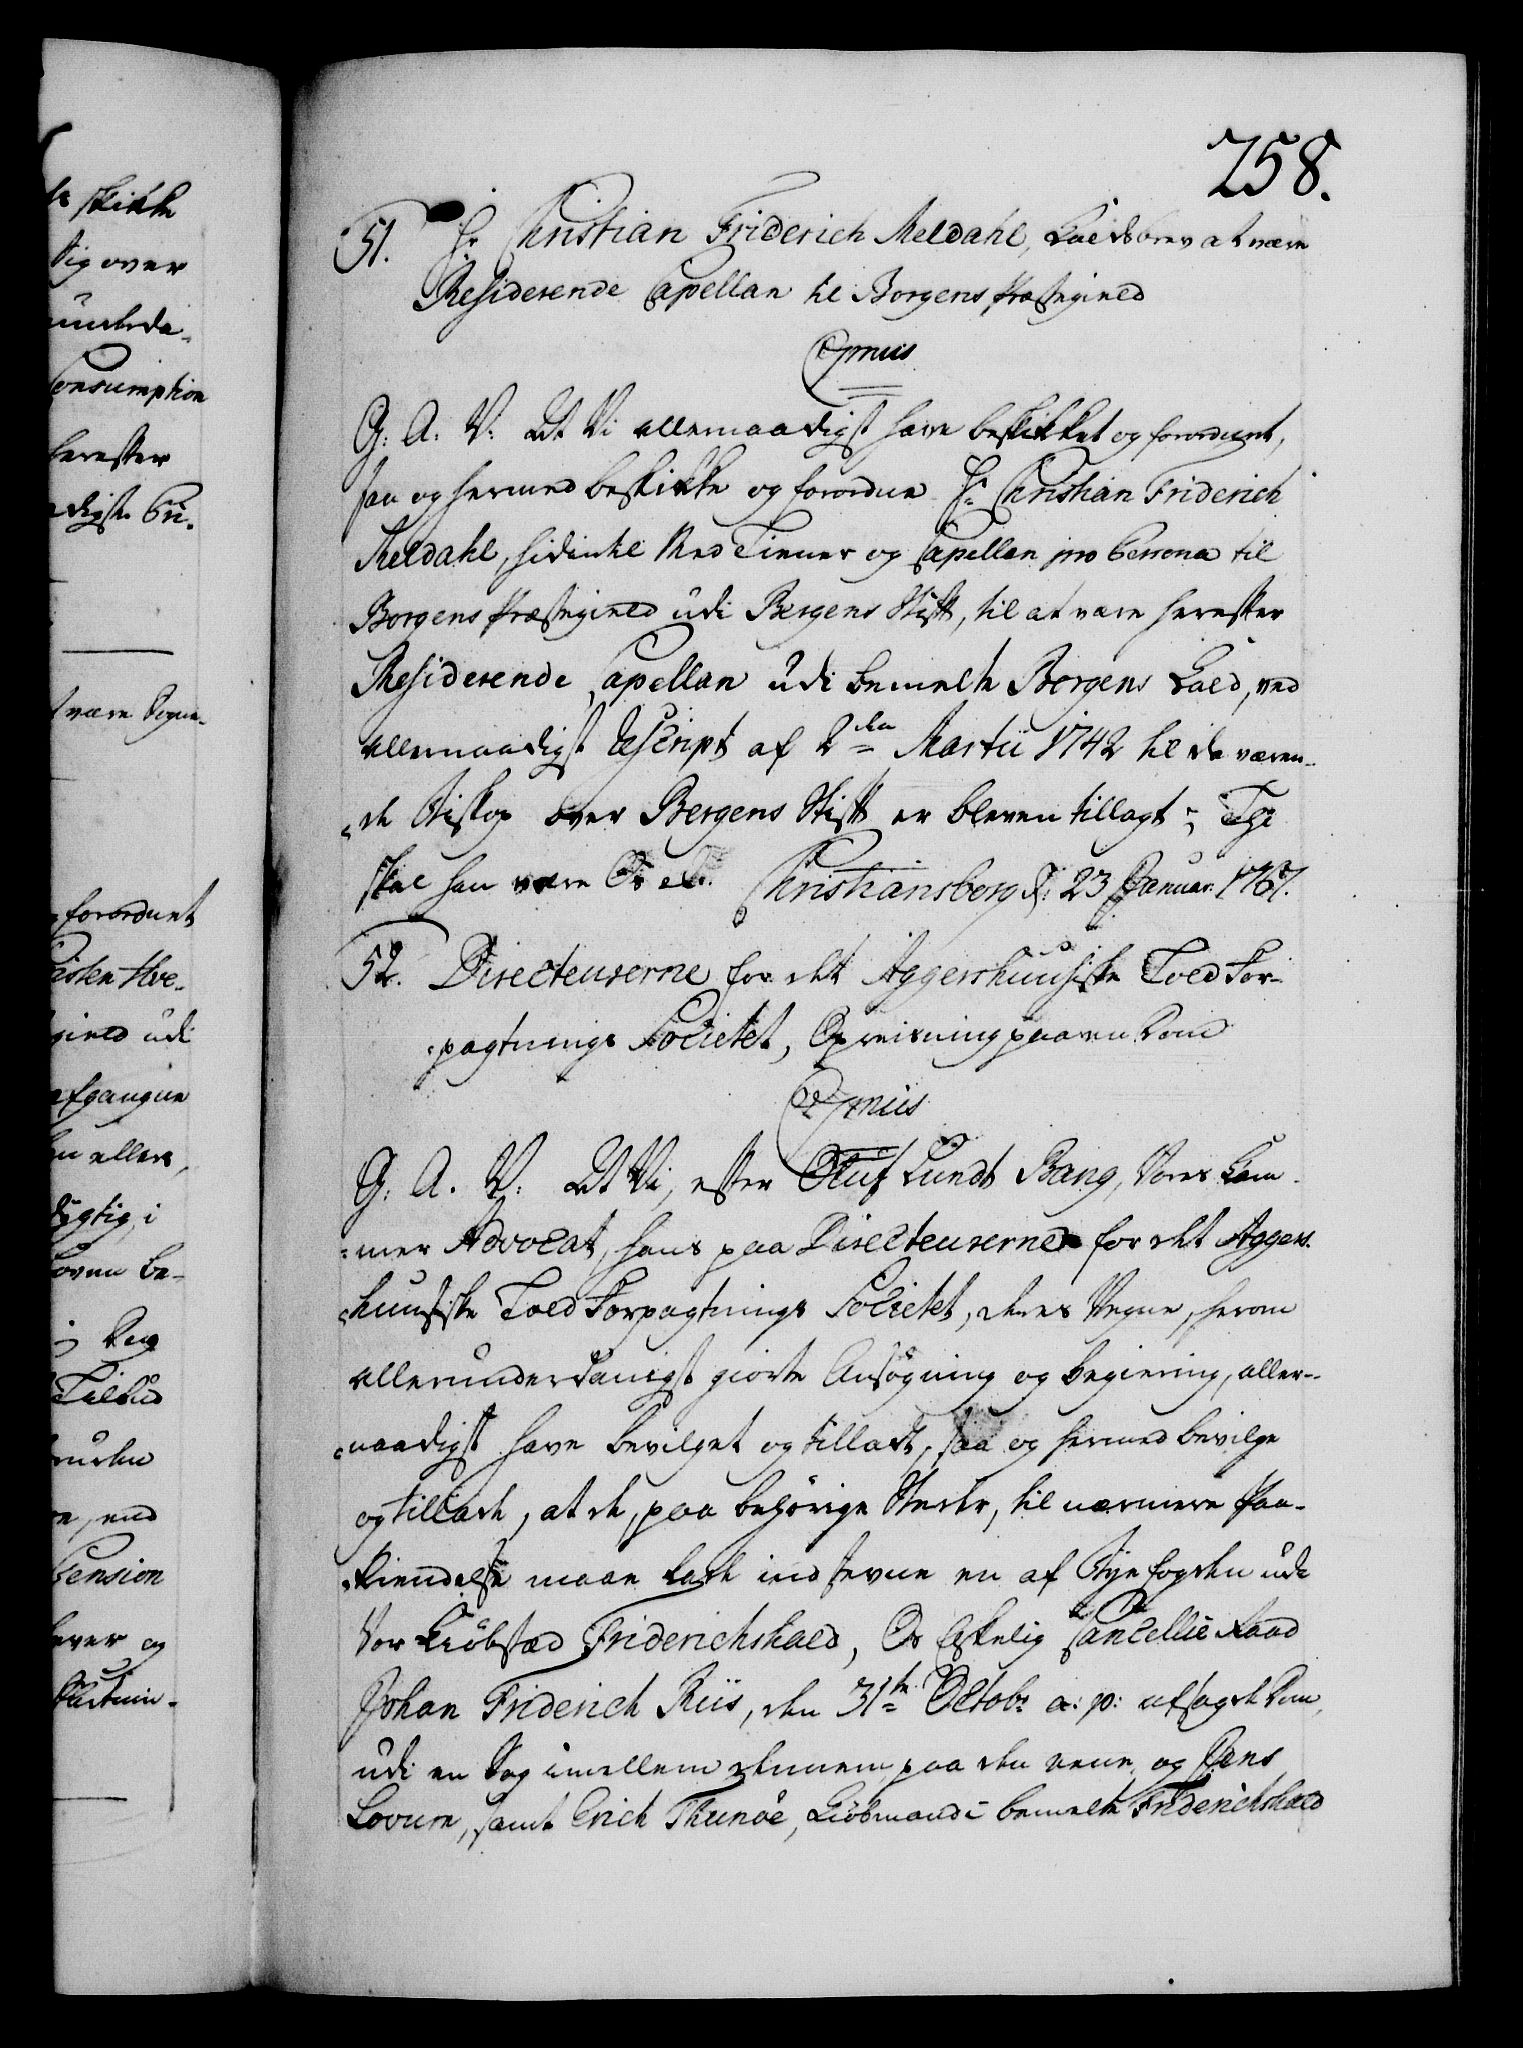 258.
51. Hr. Christian Friderich Meldahl, Kaldsbrev at være
Residerende Capellan til Borgens Præstegield
Cph:
G: A: V: At Vi allernaadigst have beskikket og forordnet,
saa og hermed beskikke og forordne Hr. Christian Friderich
Meldahl, hidindtil Med Tiener og Capellan pro Persona til
Borgens Præstegield udi Bergens Stift, til at være herefter
Residerende Capellan udi bemelte Borgens Kald, ved
allernaadigst Rescript af 2den Martii 1742 til da væren-
de Biskop over Bergens Stift er bleven tillagt; Thi
skal han være Os etc. Christiansborg d: 23 Januar. 1767.
52. Directeurerne for det Aggershuusiske Told For-
pagtnings Societet, Opreisning paa en Dom
G: A: V: At Vi, efter Oluf Lundt Bang, Vores Kam-
mer Advocat, hans paa Directeurerne for det Aggers-
huusiske Told Forpagtnings Societet, deres Vegne, herom
allerunderdanigst giorte Ansøgning og begiering, aller-
naadigst have bevilget og tilladt, saa og hermed bevilge
og tillade, at de, paa behørige Steder, til nærmere Paa-
kiendelse maae lade indstevne en af Byefogden udi
Vor Kiøbstæd Friderichshald, Os Elskelig Cancellie Raad
Johan Friderich Riis, den 31te Octobr a: p: afsagde Dom,
udi en Sag imellem dennem paa den eene, og Jens
Lovum, samt Erich Thunöe, Kiøbmænd i bemelte Friderichshald